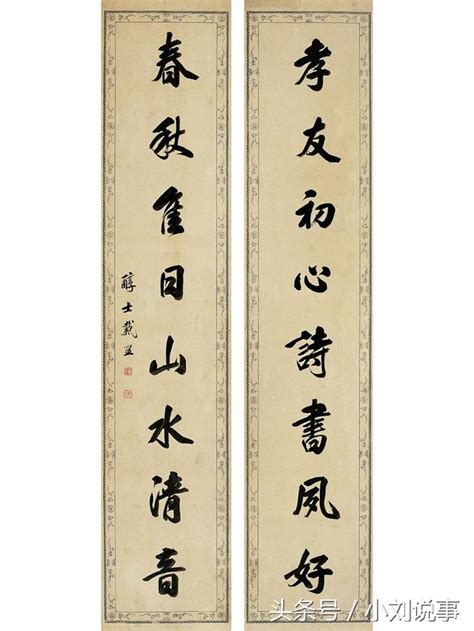 孝友初心詩書夙好
春秋佳日山水清音
醇士戴熙
头条号 / 小刘说事